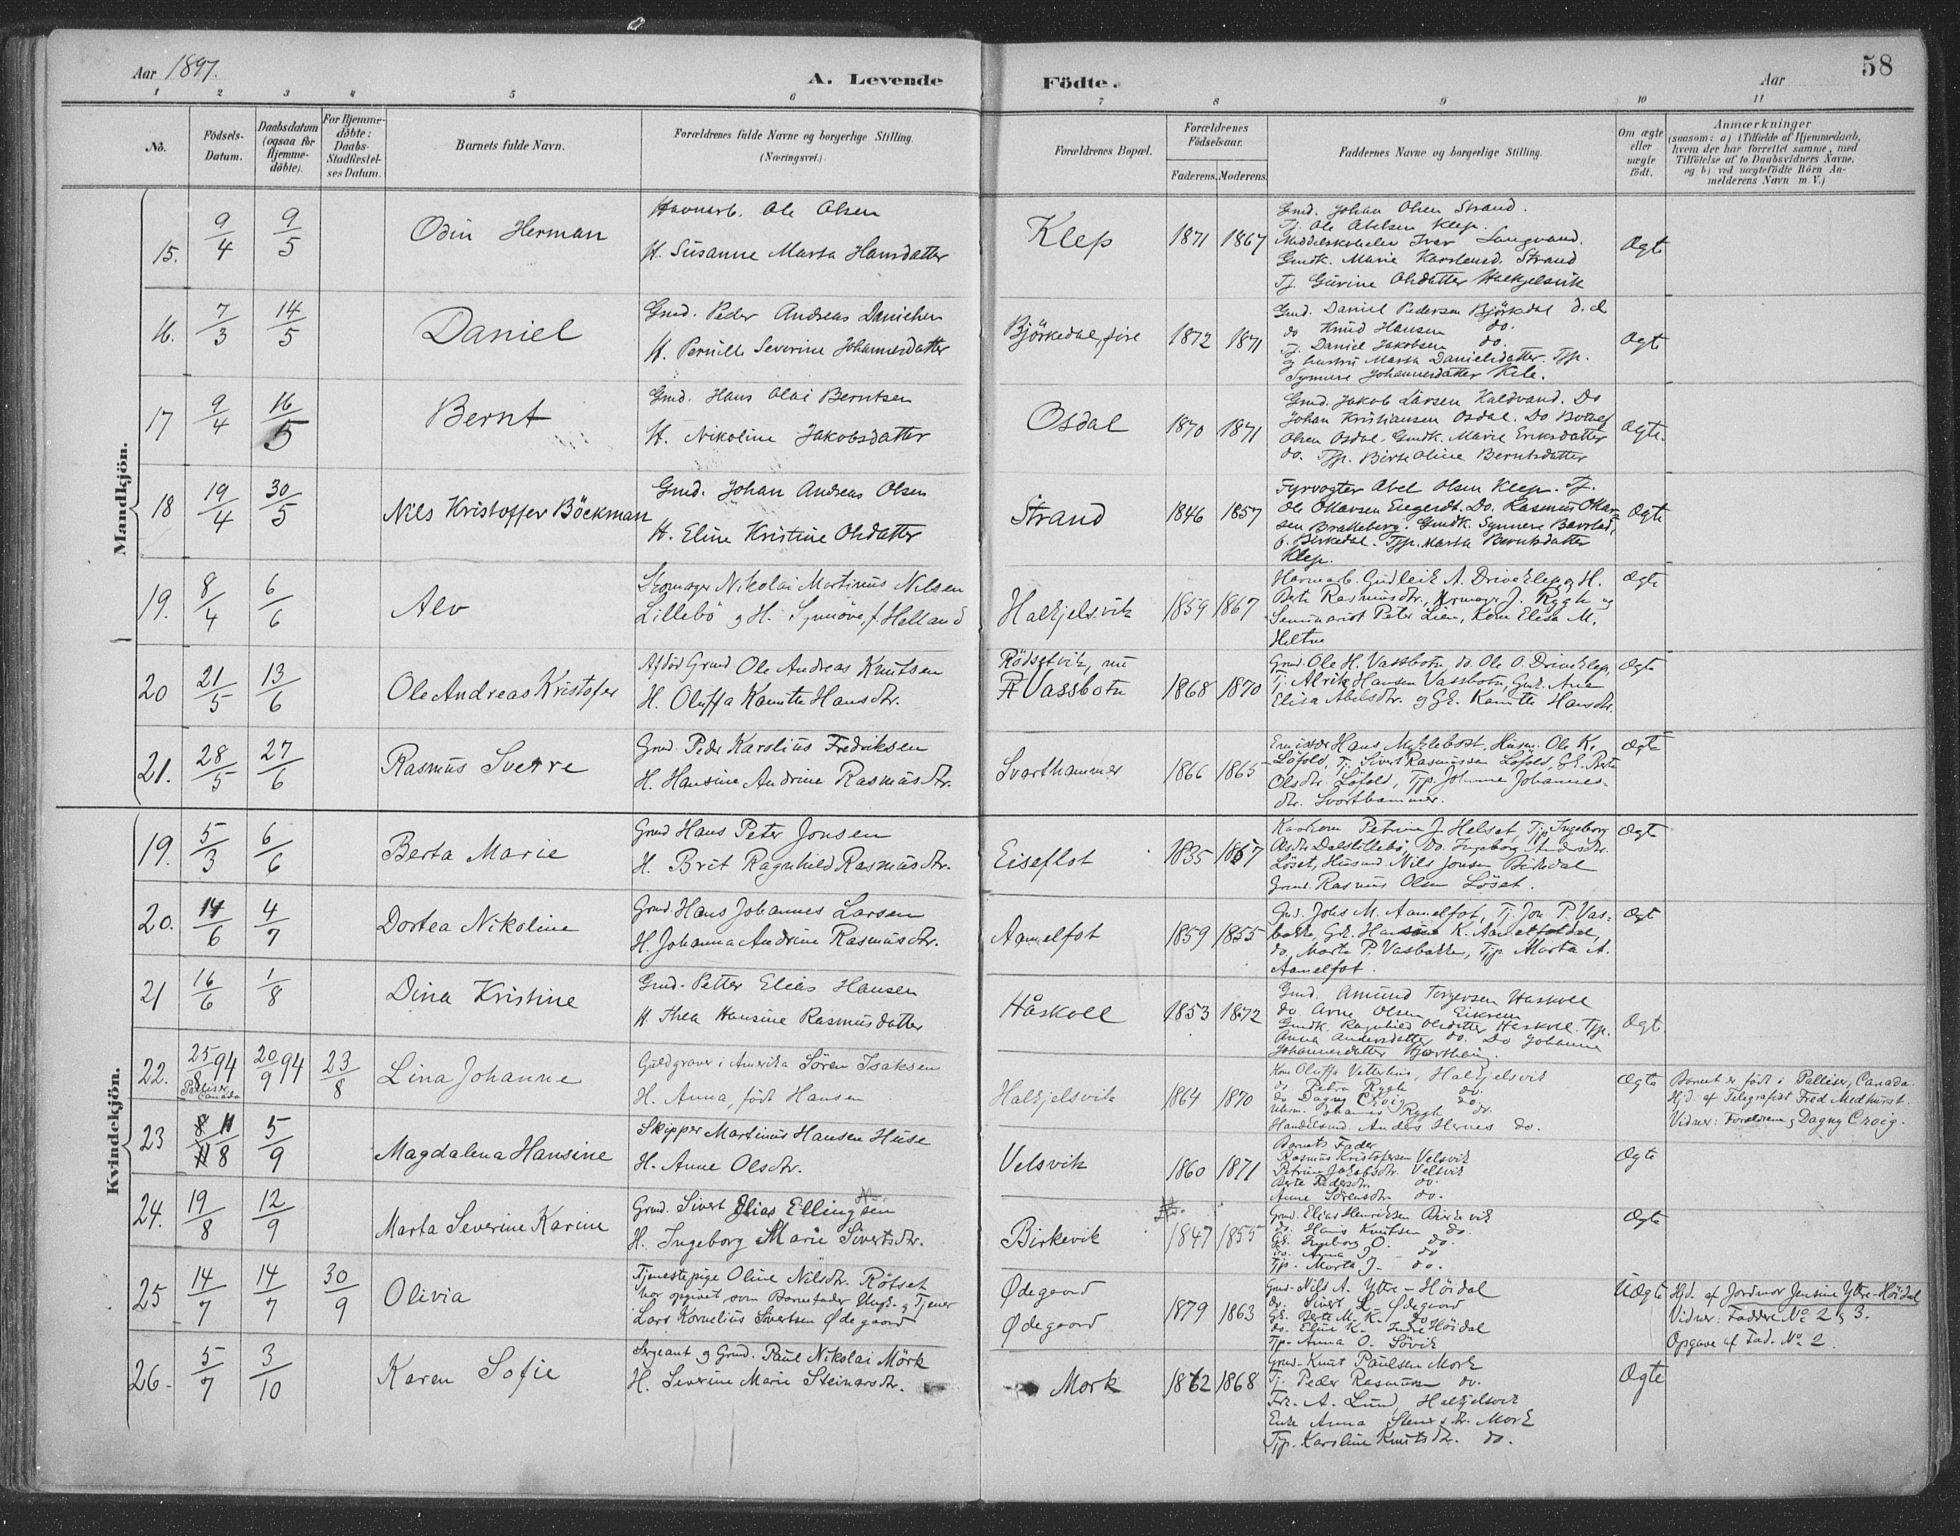 Aar 1897.
A. Levende Födte.
Aar
58
1 2 3 4 5 6 7 8 9 10 11
No.
Födsels-Datum.
Daabsdatum (ogsaa for Hjemmedöbte).
For Hjemmedöbte: Daabs-Stadfæstelses Datum.
Barnets fulde Navn.
Forældrenes fulde Navne og borgerlige Stilling. (Næringsvei.)
Forældrenes Bopæl.
Forældrenes Födselsaar.
Faderens. Moderens.
Faddernes Navne og borgerlig Stilling.
Om ægte eller uægte födt.
Anmærkninger
(saasom: a) i Tilfælde af Hjemmedaab, hvem der har forrettet samme, med Tilföielse af to Daabsvidners Navne, og b) ved uægtefödte Börn Anmelderens Navn m. V.)
Mandkjön.
15. 9/4 9/5 Odin Herman
Havnarb. Ole Olsen
H. Susanne Marta Hansdatter
Klep 1871 1867
Gmd. Johan Olsen Strand.
Tj. Ole Abelsen Klep.
Middelskoleelev Ivar Langvand.
Gmdk. Marie Karstensd. Strand
Tj. Gurine Olsdatter Halkjelsvik
Ægte
16. 7/3 14/5 Daniel
Gmd. Peder Andreas Danielsen
H. Pernille Severine Johannesdatter
Björkedal, öire 1872 1871
Gmd. Daniel Pedersen Björkedal
do Knud Hansen do.
Tj. Daniel Jakobsen do.
og hustru Marta Danielsdatter. Tjp.
Synnøve Johannesdatter Kile.
Ægte
17 9/4 16/5 Bernt
Gmd. Hans Olai Berntsen
H. Nikoline Jakobsdatter
Osdal 1870 1871
Gmd. Jakob Larsen Kaldvand. Do
Johan Kristiansen Osdal. Do
Olsen Osdal. Gmdk. Marie Eriksdatter
do. Tjp. Birte Oline Berntsdatter
Ægte.
18 19/4 30/5 Nils Kristoffer Böckman
Gmd. Johan Andreas Olsen
H. Eline Kristine Olsdatter
Strand 1846 1857
Fyrvogter Abel Olsen Klep. Tj.
Ole Ottarsen Do. Rasmus Ottarsen Bratteberg. Gmdk. Synnøve
f. Birkedal. Tjp. Marta Berntsdatter
Klep.
Ægte
19. 8/4 6/6 Alv
Skomager Nikolai Martinus Nilsen
Lillebö og H. Synnöve, f. Helland
Halkjelsvik 1859 1867
Havnarb. Gudleik A. Driveklep og H.
Berte Rasmusdtr, J. Rygh og
Seminarist Peter Lien, Kone Elisa M.
Heltne
Ægte
20 21/5 13/6 Ole Andreas Kristofer
Afdöd Gmd Ole Andreas Knutsen
H. Oluffa Kamilla Hansdtr.
Rödsetvik, nu
Vassbotn 1868 1870
Gmd. Ole H. Vassbotn, do. Ole O. Driveklep,
Tj. Alrik Hansen Vassbotn, Gmk. Ane
Elisa Abelsdtr. og Gk. Kamilla Hansdtr.
Ægte
21. 28/5 27/6 Rasmus Sverre
Gmd. Peder Karolius Fredriksen
H. Hansine Andrine Rasmusdtr.
Svarthammer 1866 1865
Hans Myklebost, Husm. Ole K.
Löfold, Tj. Sivert Rasmussen Löfold, Gk. Berte
Olsdtr. Löfold, Tjp. Johanne Johannesdtr. Svarthammer.
Ægte
Kvindekjön.
19. 5/3 6/6 Berta Marie
Gmd Hans Peter Jonsen
H. Brit Ragnhild Rasmusdtr.
Eiseflot 1835 1867
Petrine J. Helset, Tjp. Ingeborg
Olsdtr. Dalslillebö, Do. Ingeborg Andersdtr.
Löset, Husmd. Nils Jonsen Birkedal
Gmd. Rasmus Olsen Löset.
Ægte
20. 14/6 4/7 Dortea Nikoline
Gmd. Hans Johannes Larsen
H. Johanna Andrine Rasmusdtr.
Aamelfot 1859 1855
Gmd. Johs M. Aamelfot, Tj. Jon P. Vasbakke, Gk. Hansine K. Aamelfotdal,
do. Marte P. Vasbakke, Tjp. Marta A.
Aamelfot.
Ægte
21 16/6 1/8 Dina Kristine
Gmd. Petter Elias Hansen
H. Thea Hansine Rasmusdatter
Håskoll 1853 1872
Gmd. Amund Torgersen Haskoll
do Arne Olsen Eikrem
Gmdk. Ragnhild Olsdatter Haskoll. Tjp.
Anna Andersdatter do. Do Johanne
Johannesdatter
Ægt.
22. 25/8 94 Palliser Canada 20/9 94 23/8 Lina Johanne
Guldgraver i Amerika Sören Isaksen
H. Anna, födt Hansen
Halkjelsvik 1864 1870
Kone Oluffa Vatterhus, Halkjelsvik
do Petra Rygh do.
do Dagny Croig do.
Urm. Johannes Rygh do.
Handelsmd. Anders Hernes do.
Ægte
Barnet er födt i Palliser, Canada.
Hjd. af Telegrafist Fred Medhurst.
Vidner: Forældrene og Dagny Croig.
23 11/8 5/9 Magdalena Hansine
Skipper Martinus Hansen Huse
H. Anne Olsdtr.
Velsvik 1860 1871
Barnets Fader
Rasmus Kristofersen Velsvik
Petrine Jakobsdtr. Velsvik
Berte Pedersdtr. do.
Anne Sörensdtr do.
Ægte
24. 19/8 12/9 Marta Severine Karine
Gmd. Sivert Elias Ellingsen
H. Ingeborg Marie Sivertsdtr.
Birkevik 1847 1855
Gmd. Elias Henriksen Birkevik
do. Hans Knutsen do.
Gk. Ingeborg O. do.
do. Anna J. do
Tjp. Marta J. do.
Ægte
25 14/7 14/7 30/9 Olivia
Tjenestepige Oline Nilsdtr. Rötset
har opgivet som Barnefader Ungk. og Tjener
Lars Kornelius Sivertsen Ödegaard
Ödegaard
Ödegaard 1879 1863
Gmd. Nils A. Ytre-Höidal
do. Sivert L. Ödegaard
Gk. Berte M. K. do
do. Eline K. Indre Höidal
Tjp. Anna O. Sövik
Uægt
Hjd. af Jordmor Jensine Ytre-Höidal
Vidner: Faddere No 2 og 3.
Opgave af Fad. No 2.
26. 5/7 3/10 Karen Sofie
Sergeant og Gmd. Paul Nikolai Mörk
H. Severine Marie Steinarsdtr.
Mork 1862 1868
Gmd. Knut Paulsen Mork
Tj. Peder Rasmussen do.
Frk. A. Lund, Halkjelsvik
Enke Anna Steinarsdtr. Mork
Tjp. Karoline Knutsdtr. do.
Ægte